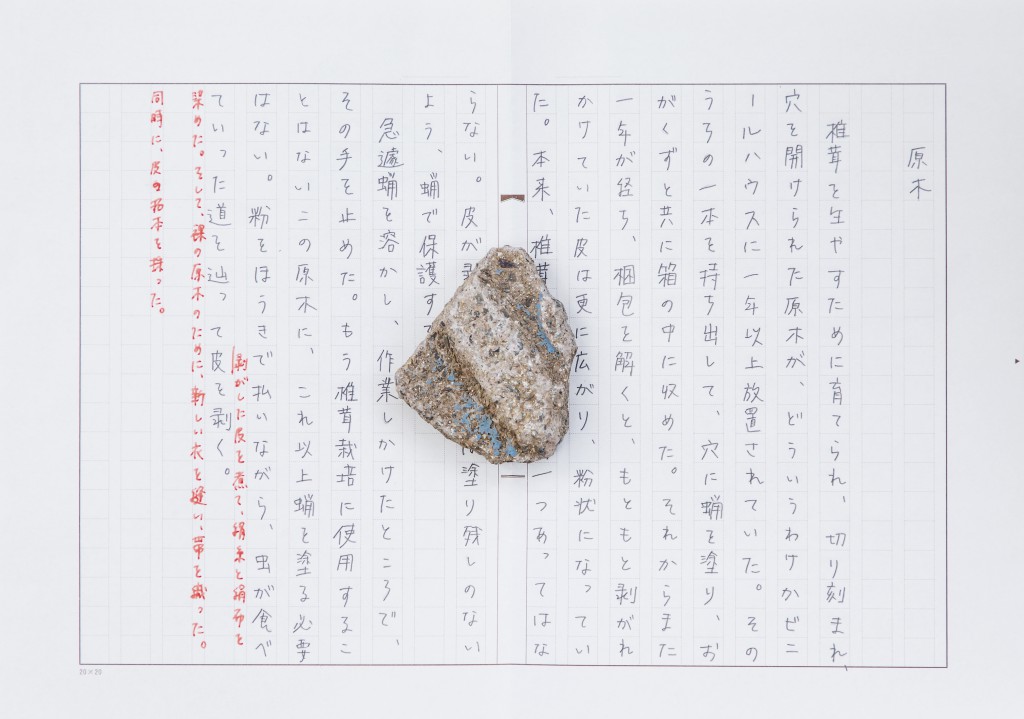 原木
椎茸を生やすために育てられ、切り刻まれ、
穴を開けられた原木が、どういうわけかビニ
ールハウスに一年以上放置されていた。その
うちの一本を持ち出して、穴に蝋を塗り、お
がくずと共に箱の中に収めた。それからまた
一年が経ち、梱包を解くと、もともと剥がれ
かけていた皮は更に広がり、粉状になってい
た。本来、椎茸 一つあってはな
らない。皮が剥 は塗り残しのない
よう、蝋で保護す
急遽蝋を溶かし、作業しかけたところで、
その手を止めた。もう椎茸栽培に使用するこ
とはないこの原木に、これ以上蝋を塗る必要
はない。粉をほうきで払いながら、虫が食べ
ていった道を辿って皮を剥く。
剥がした皮を煮て、絹糸と絹布を
染めた。そして、裸の原木のために、新しい衣を縫い、帯を織った。
同時に、皮の拓本を採った。
20×20